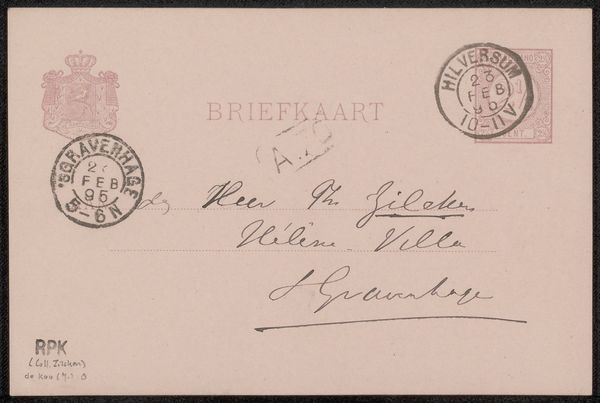 BRIEFKAART
HILVERSUM
23
FEB
95
10-11V
'SGRAVENHAGE
23
FEB
95
5-6N
Heer Ph Zilcken
Hélène-Villa
s'Gravenhage
RPK
(Coll. Zilcken)